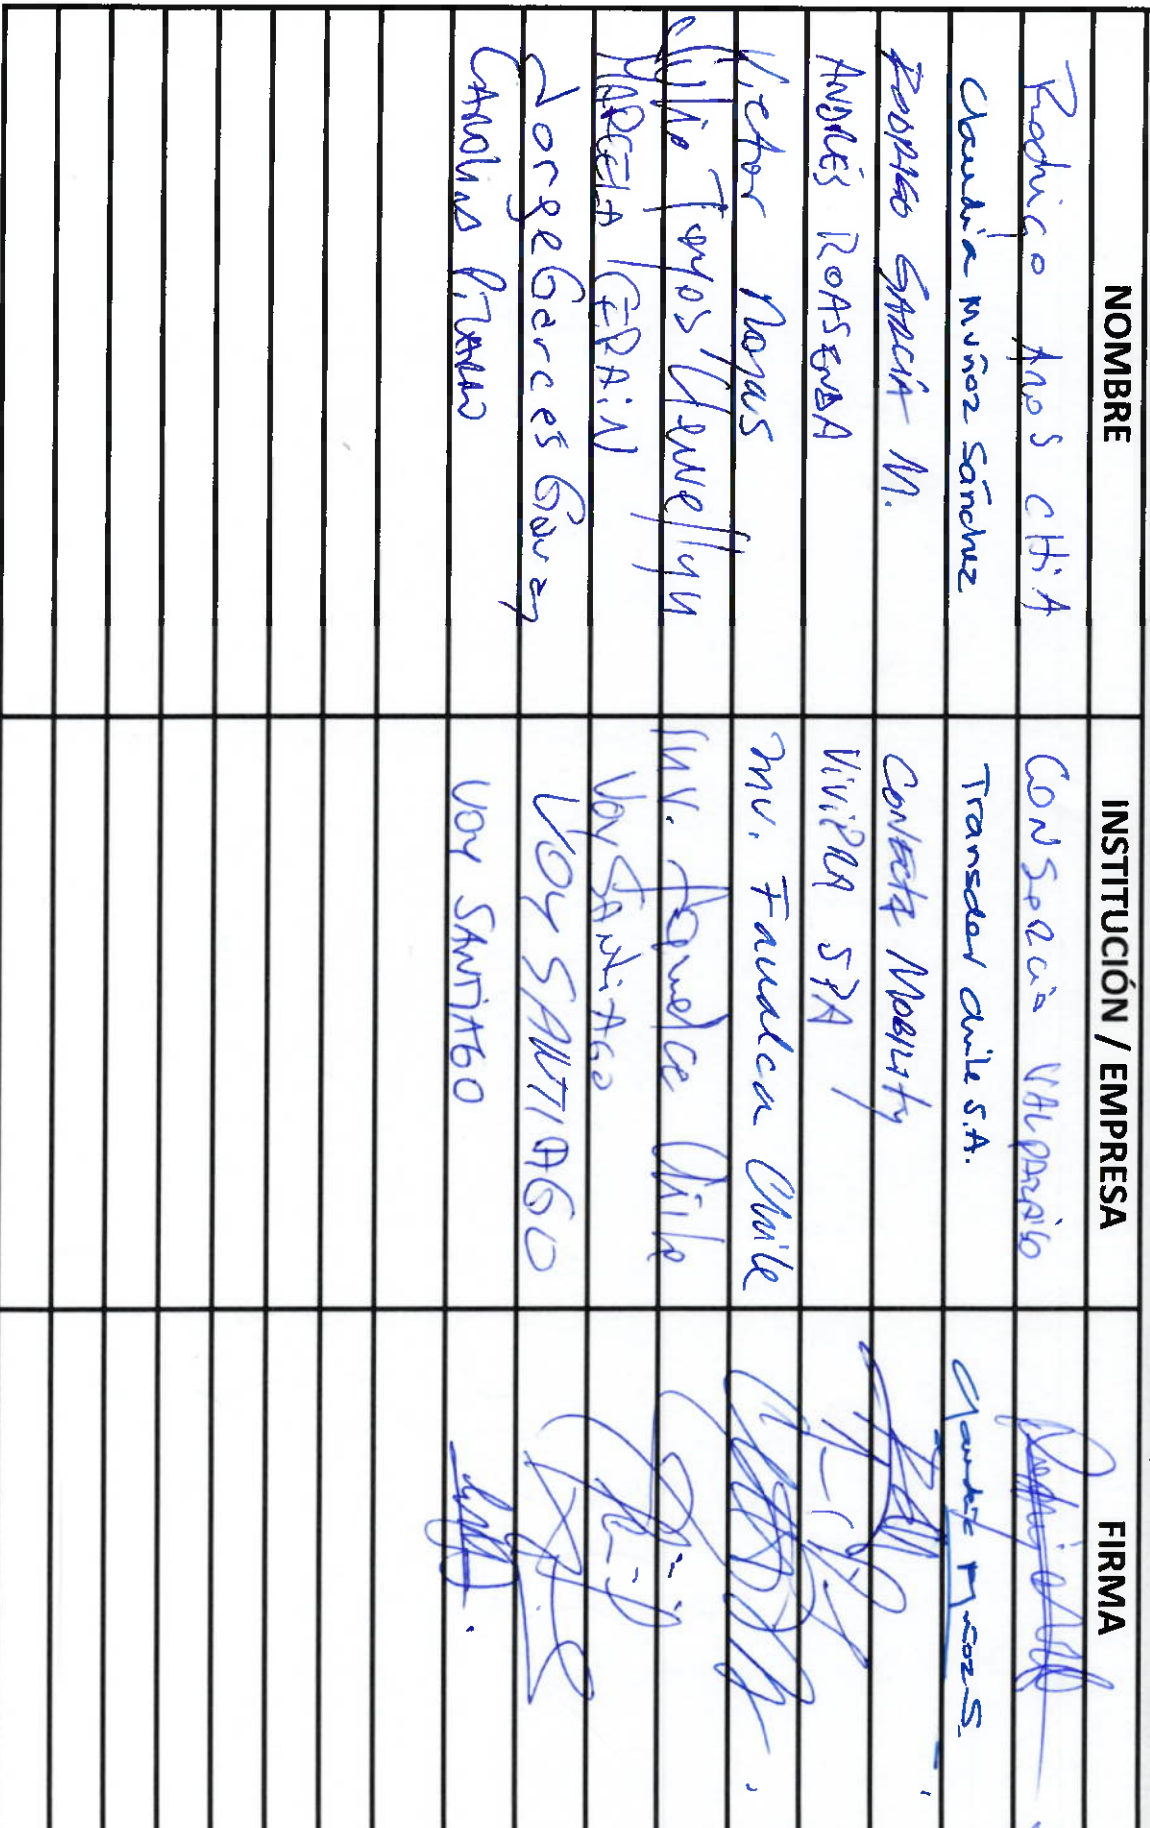 NOMBRE INSTITUCIÓN / EMPRESA FIRMA
Rodrigo Aros CHiA CONSORCIO VALPARAISO
Claudia Muñoz Sánchez Transdev Chile S.A. Claudia Muñoz S.
RODRIGO GARCÍA M. CONECTA MOBILITY
ANDRÉS ROASENDA ViViPRA SPA
Victor Inv. Faualca Chile
Julio Inv. Chile
MARCELA CERAiN VOY SANTiAGO
Jorge Garcés Garay VOY SANTIAGO
CAROLINA PIZARRO VOY SANTIAGO